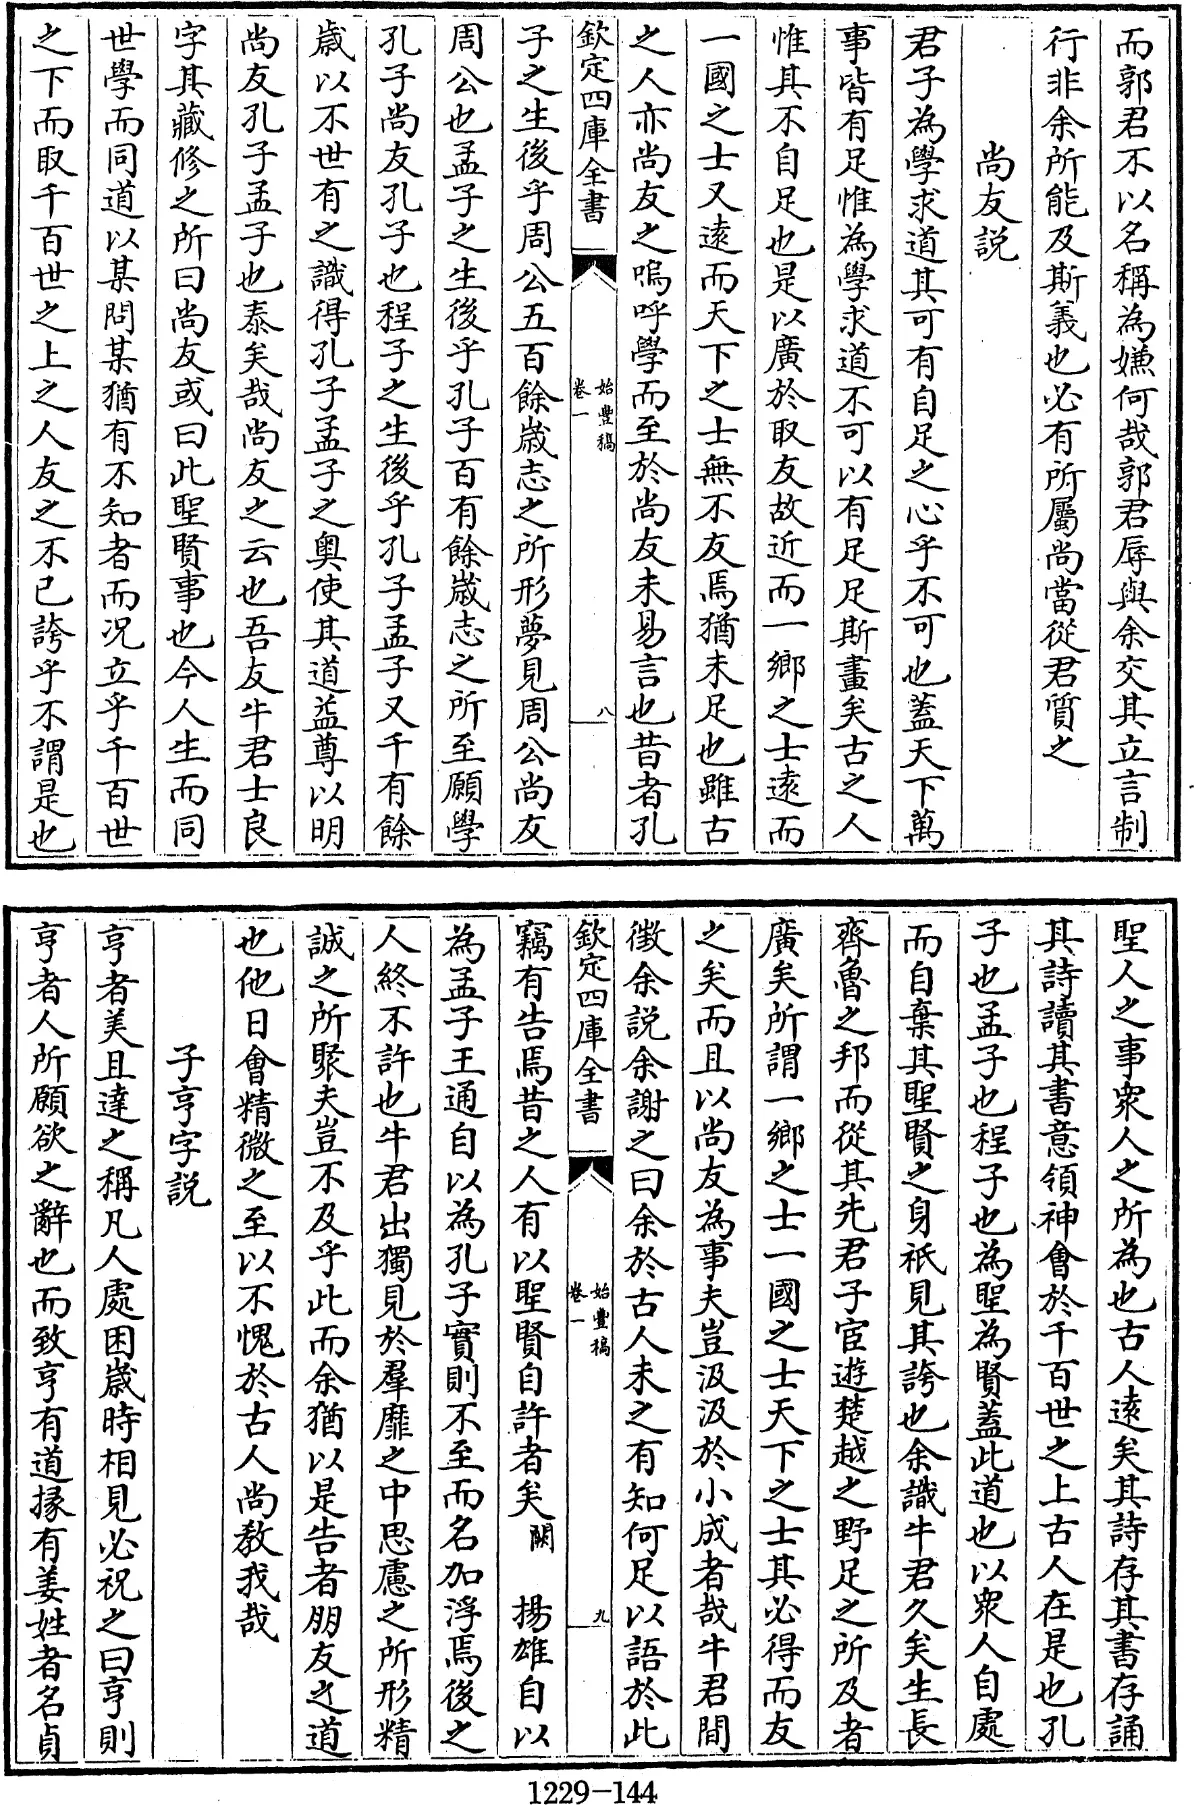 而郭君不以名稱為嫌何哉郭君辱與余交其立言制
行非余所能及斯義也必有所屬尚當從君質之
尚友説
君子為學求道其可有自足之心乎不可也蓋天下萬
事皆有足惟為學求道不可以有足足斯畫矣古之人
惟其不自足也是以廣於取友故近而一鄉之士逺而
一國之士又逺而天下之士無不友焉猶未足也雖古
之人亦尚友之嗚呼學而至於尚友未易言也昔者孔
欽定四庫全書
始豐稿
卷一
八
子之生後乎周公五百餘歲志之所形夢見周公尚友
周公也孟子之生後乎孔子百有餘歲志之所至願學
孔子尚友孔子也程子之生後乎孔子孟子又千有餘
歲以不世有之識得孔子孟子之奥使其道益尊以明
尚友孔子孟子也泰矣哉尚友之云也吾友牛君士良
字其藏修之所曰尚友或曰此聖賢事也今人生而同
世學而同道以某問某猶有不知者而况立乎千百世
之下而取千百世之上之人友之不已誇乎不謂是也
聖人之事衆人之所為也古人逺矣其詩存其書存誦
其詩讀其書意領神會於千百世之上古人在是也孔
子也孟子也程子也為聖為賢蓋此道也以衆人自處
而自棄其聖賢之身祇見其誇也余識牛君久矣生長
齊魯之邦而從其先君子宦遊楚越之野足之所及者
廣矣所謂一鄉之士一國之士天下之士其必得而友
之矣而且以尚友為事夫豈汲汲於小成者哉牛君間
徴余説余謝之曰余於古人未之有知何足以語於此
欽定四庫全書
始豐稿
卷一
九
竊有告焉昔之人有以聖賢自許者矣 闕 揚雄自以
為孟子王通自以為孔子實則不至而名加浮焉後之
人終不許也牛君出獨見於羣靡之中思慮之所形精
誠之所聚夫豈不及乎此而余猶以是告者朋友之道
也他日會精微之至以不愧於古人尚教我哉
子亨字説
亨者美且達之稱凡人處困歲時相見必祝之曰亨則
亨者人所願欲之辭也而致亨有道掾有姜姓者名貞
1229-144